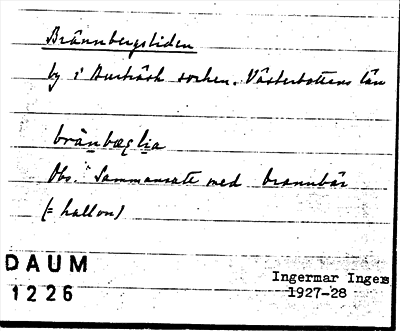 Brännbergsliden
by i Burträsk socken. Västerbottens län
brànbæɽlia
Obs. Sammansatt med brannbär
(= hallon)
DAUM
1226
Ingermar Ingers
1927-28